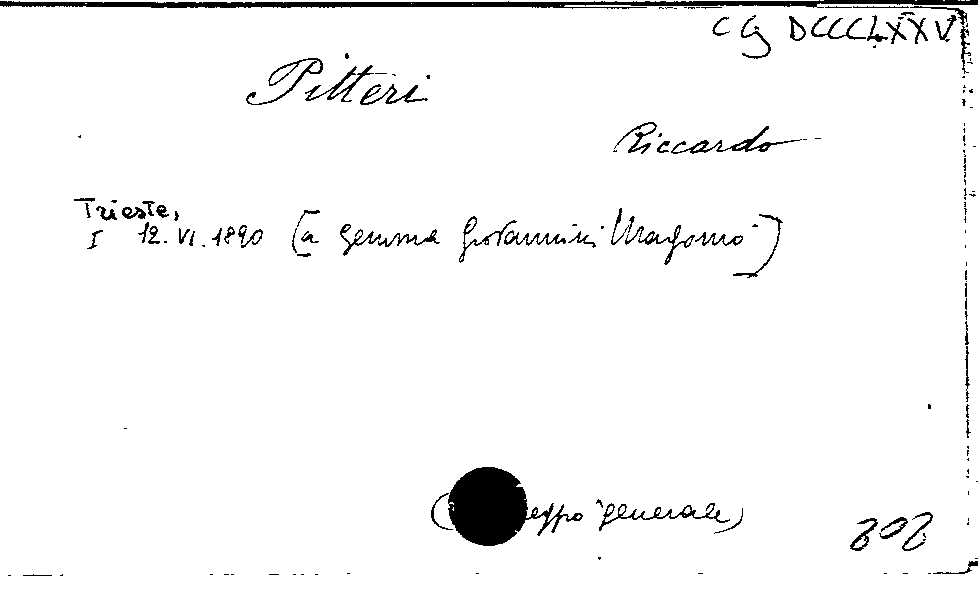 CG DCCCLXXV
Pitteri
Riccardo
Trieste,
I 12.VI.1890 [a Gemma Giovannini Magonio]
generale)
202